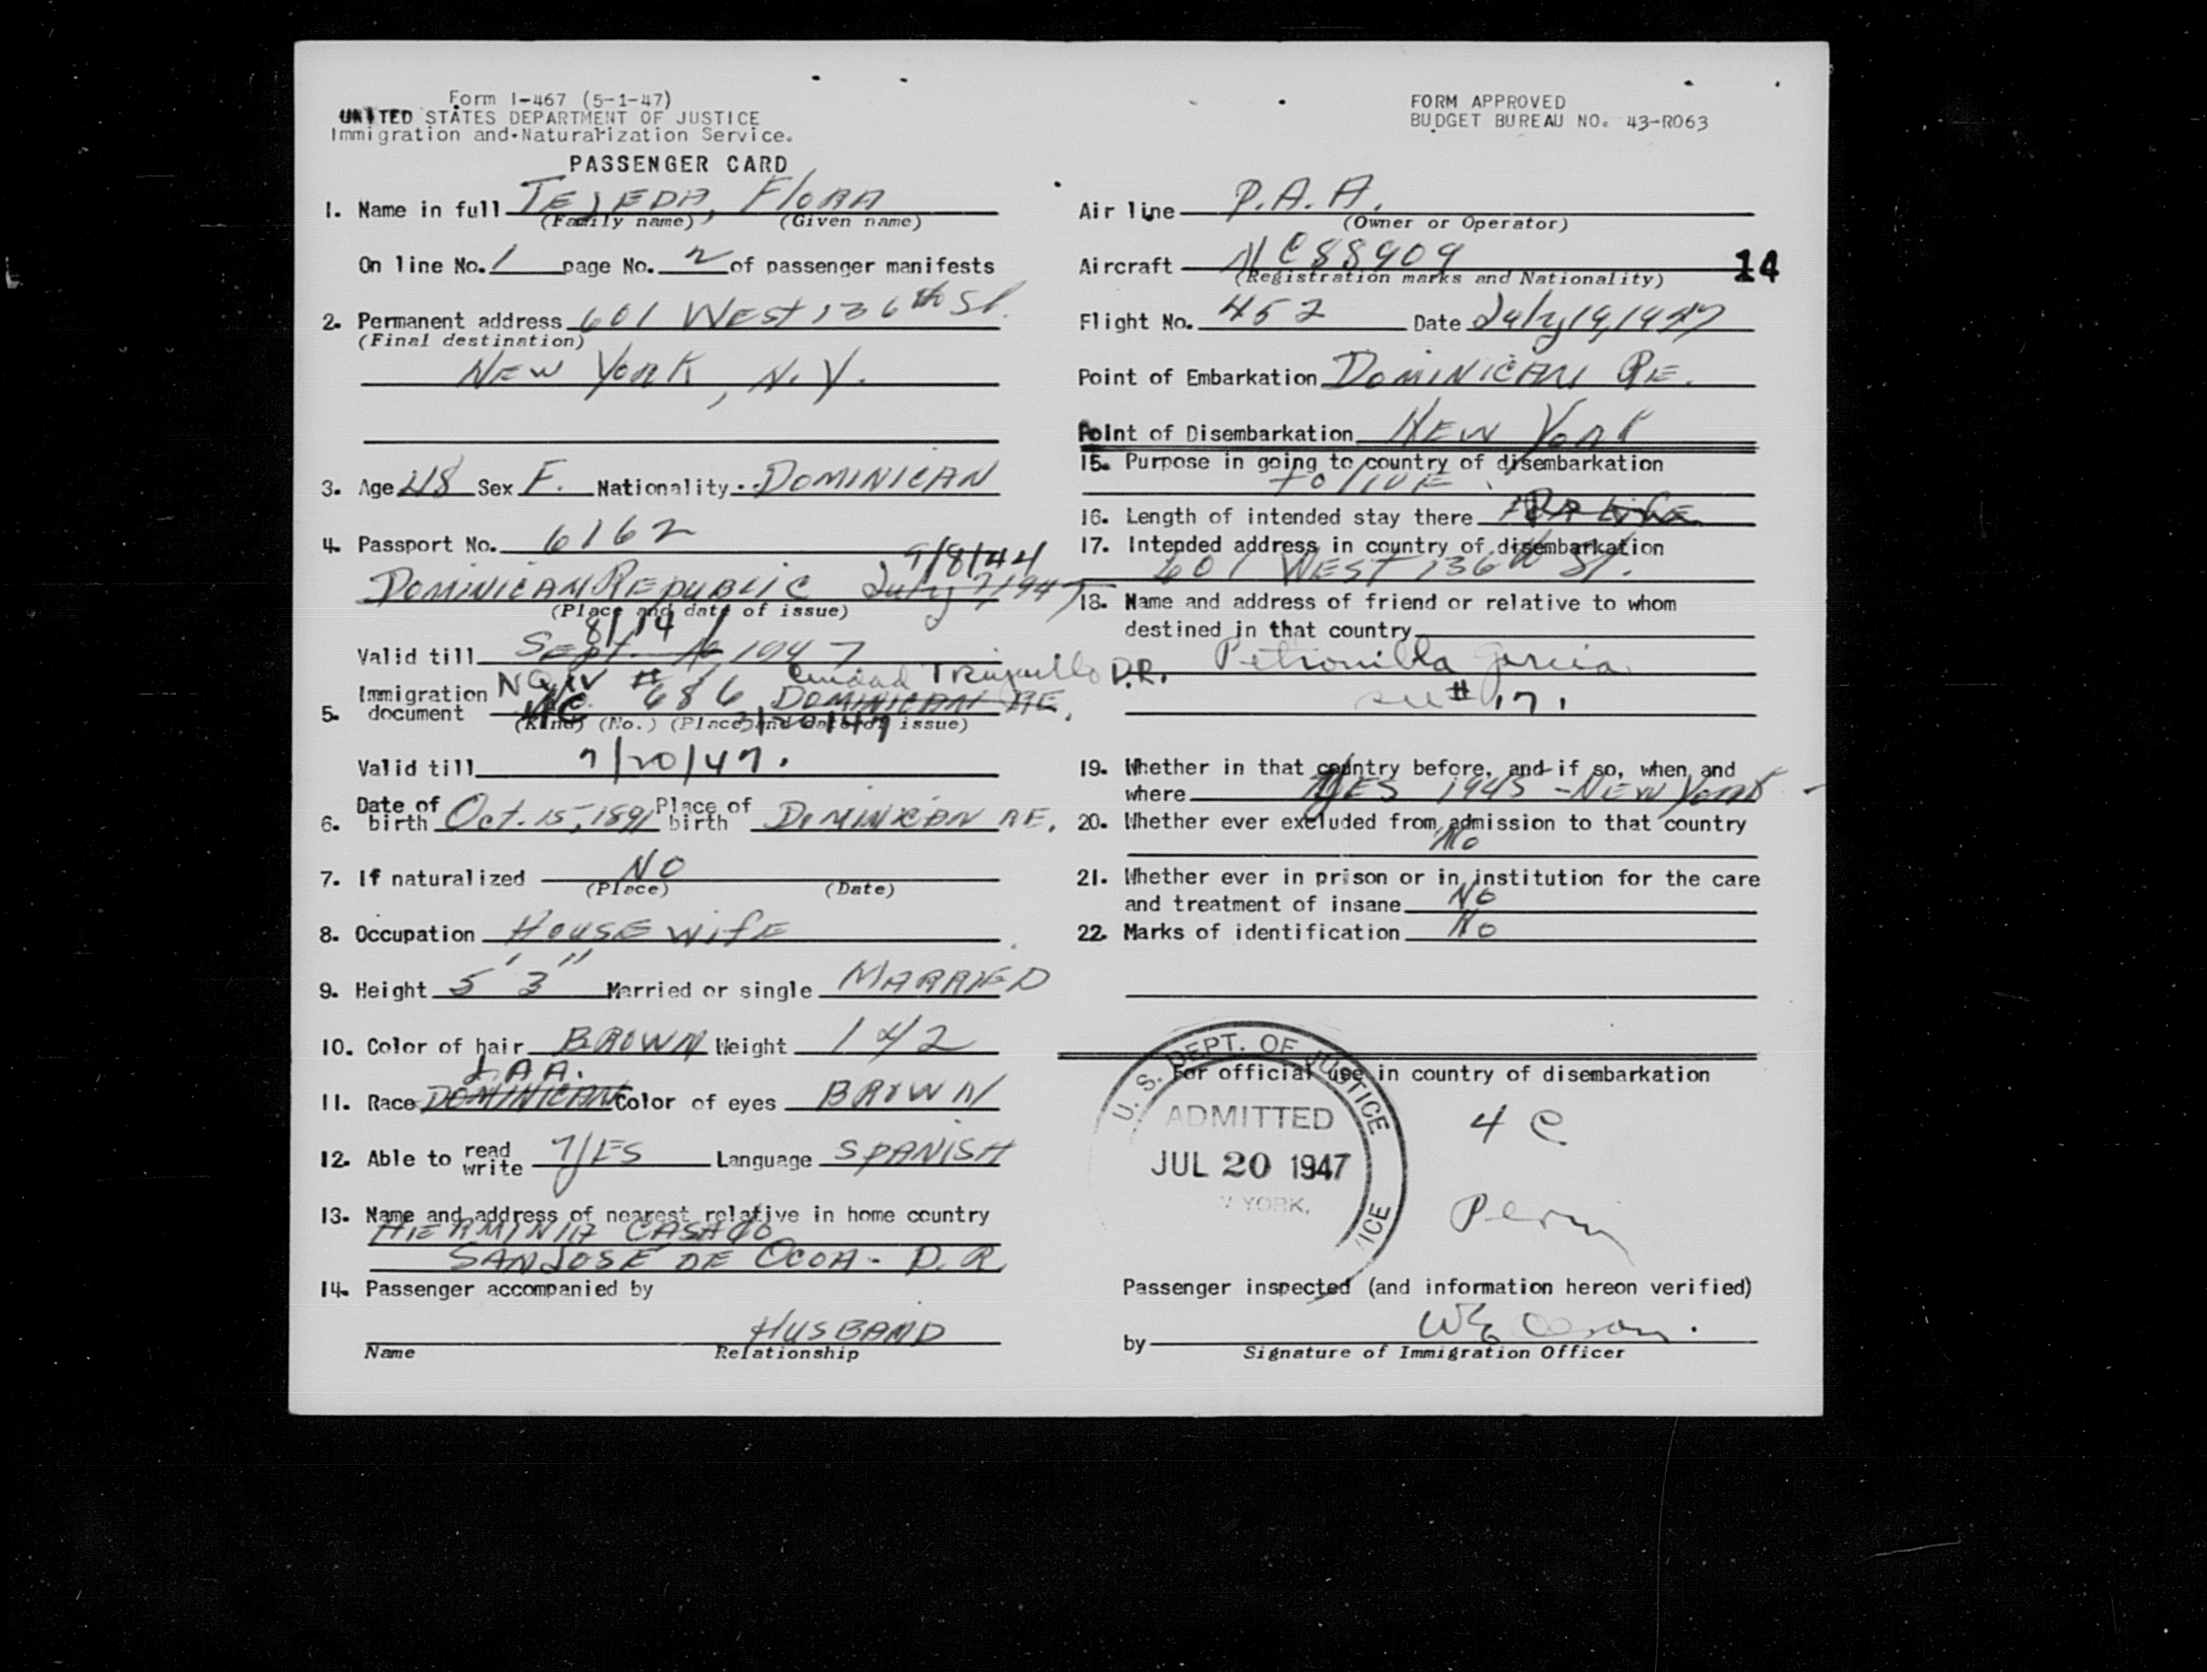 Form I-467 (5-1-47)
UNITED STATES DEPARTMENT OF JUSTICE
Immigration and Naturalization Service.
PASSENGER CARD
1. Name in full TEJEDA, FLORA
(Family name) (Given name)
On line No. 1 page No. 2 of passenger manifests
2. Permanent address 601 WEST 136th St.
(Final destination)
NEW YORK, N.Y.
3. Age 48 Sex F. Nationality DOMINICAN
4. Passport No. 6162
9/8/44
DOMINICAN REPUBLIC July 7, 1947
(Place and date of issue)
8/14/
Valid till Sept. 1947
Ciudad Trujillo D.R.
Immigration NQIV # 686 DOMINICAN RE.
5. document
(Kind) (No.) (Place and date of issue)
Valid till 7/20/47.
6. Date of birth Oct. 15, 1891 Place of birth DOMINICAN RE.
7. If naturalized NO
(Place) (Date)
8. Occupation HOUSE WIFE
9. Height 5' 3" Married or single MARRIED
10. Color of hair BROWN Weight 142
LAA.
11. Race DOMINICAN Color of eyes BROWN
12. Able to read write YES Language SPANISH
13. Name and address of nearest relative in home country
HERMINIA CASADO
SAN JOSE DE OCOA - D.R.
14. Passenger accompanied by
HUSBAND
Name Relationship
FORM APPROVED
BUDGET BUREAU NO. 43-R063
Air line P.A.A.
(Owner or Operator)
Aircraft NC88909 14
(Registration marks and Nationality)
Flight No. 452 Date July 19, 1947
Point of Embarkation DOMINICAN RE.
Point of Disembarkation NEW YORK
15. Purpose in going to country of disembarkation
TO LIVE
16. Length of intended stay there
17. Intended address in country of disembarkation
601 WEST 136th St.
18. Name and address of friend or relative to whom
destined in that country
Petronilla Garcia
# 17
19. Whether in that country before, and if so, when and
where YES 1945 - NEW YORK
20. Whether ever excluded from admission to that country
No
21. Whether ever in prison or in institution for the care
and treatment of insane No
22. Marks of identification No
For official use in country of disembarkation
U. S. DEPT. OF JUSTICE
ADMITTED
JUL 20 1947
YORK,
4 C
Passenger inspected (and information hereon verified)
by
Signature of Immigration Officer